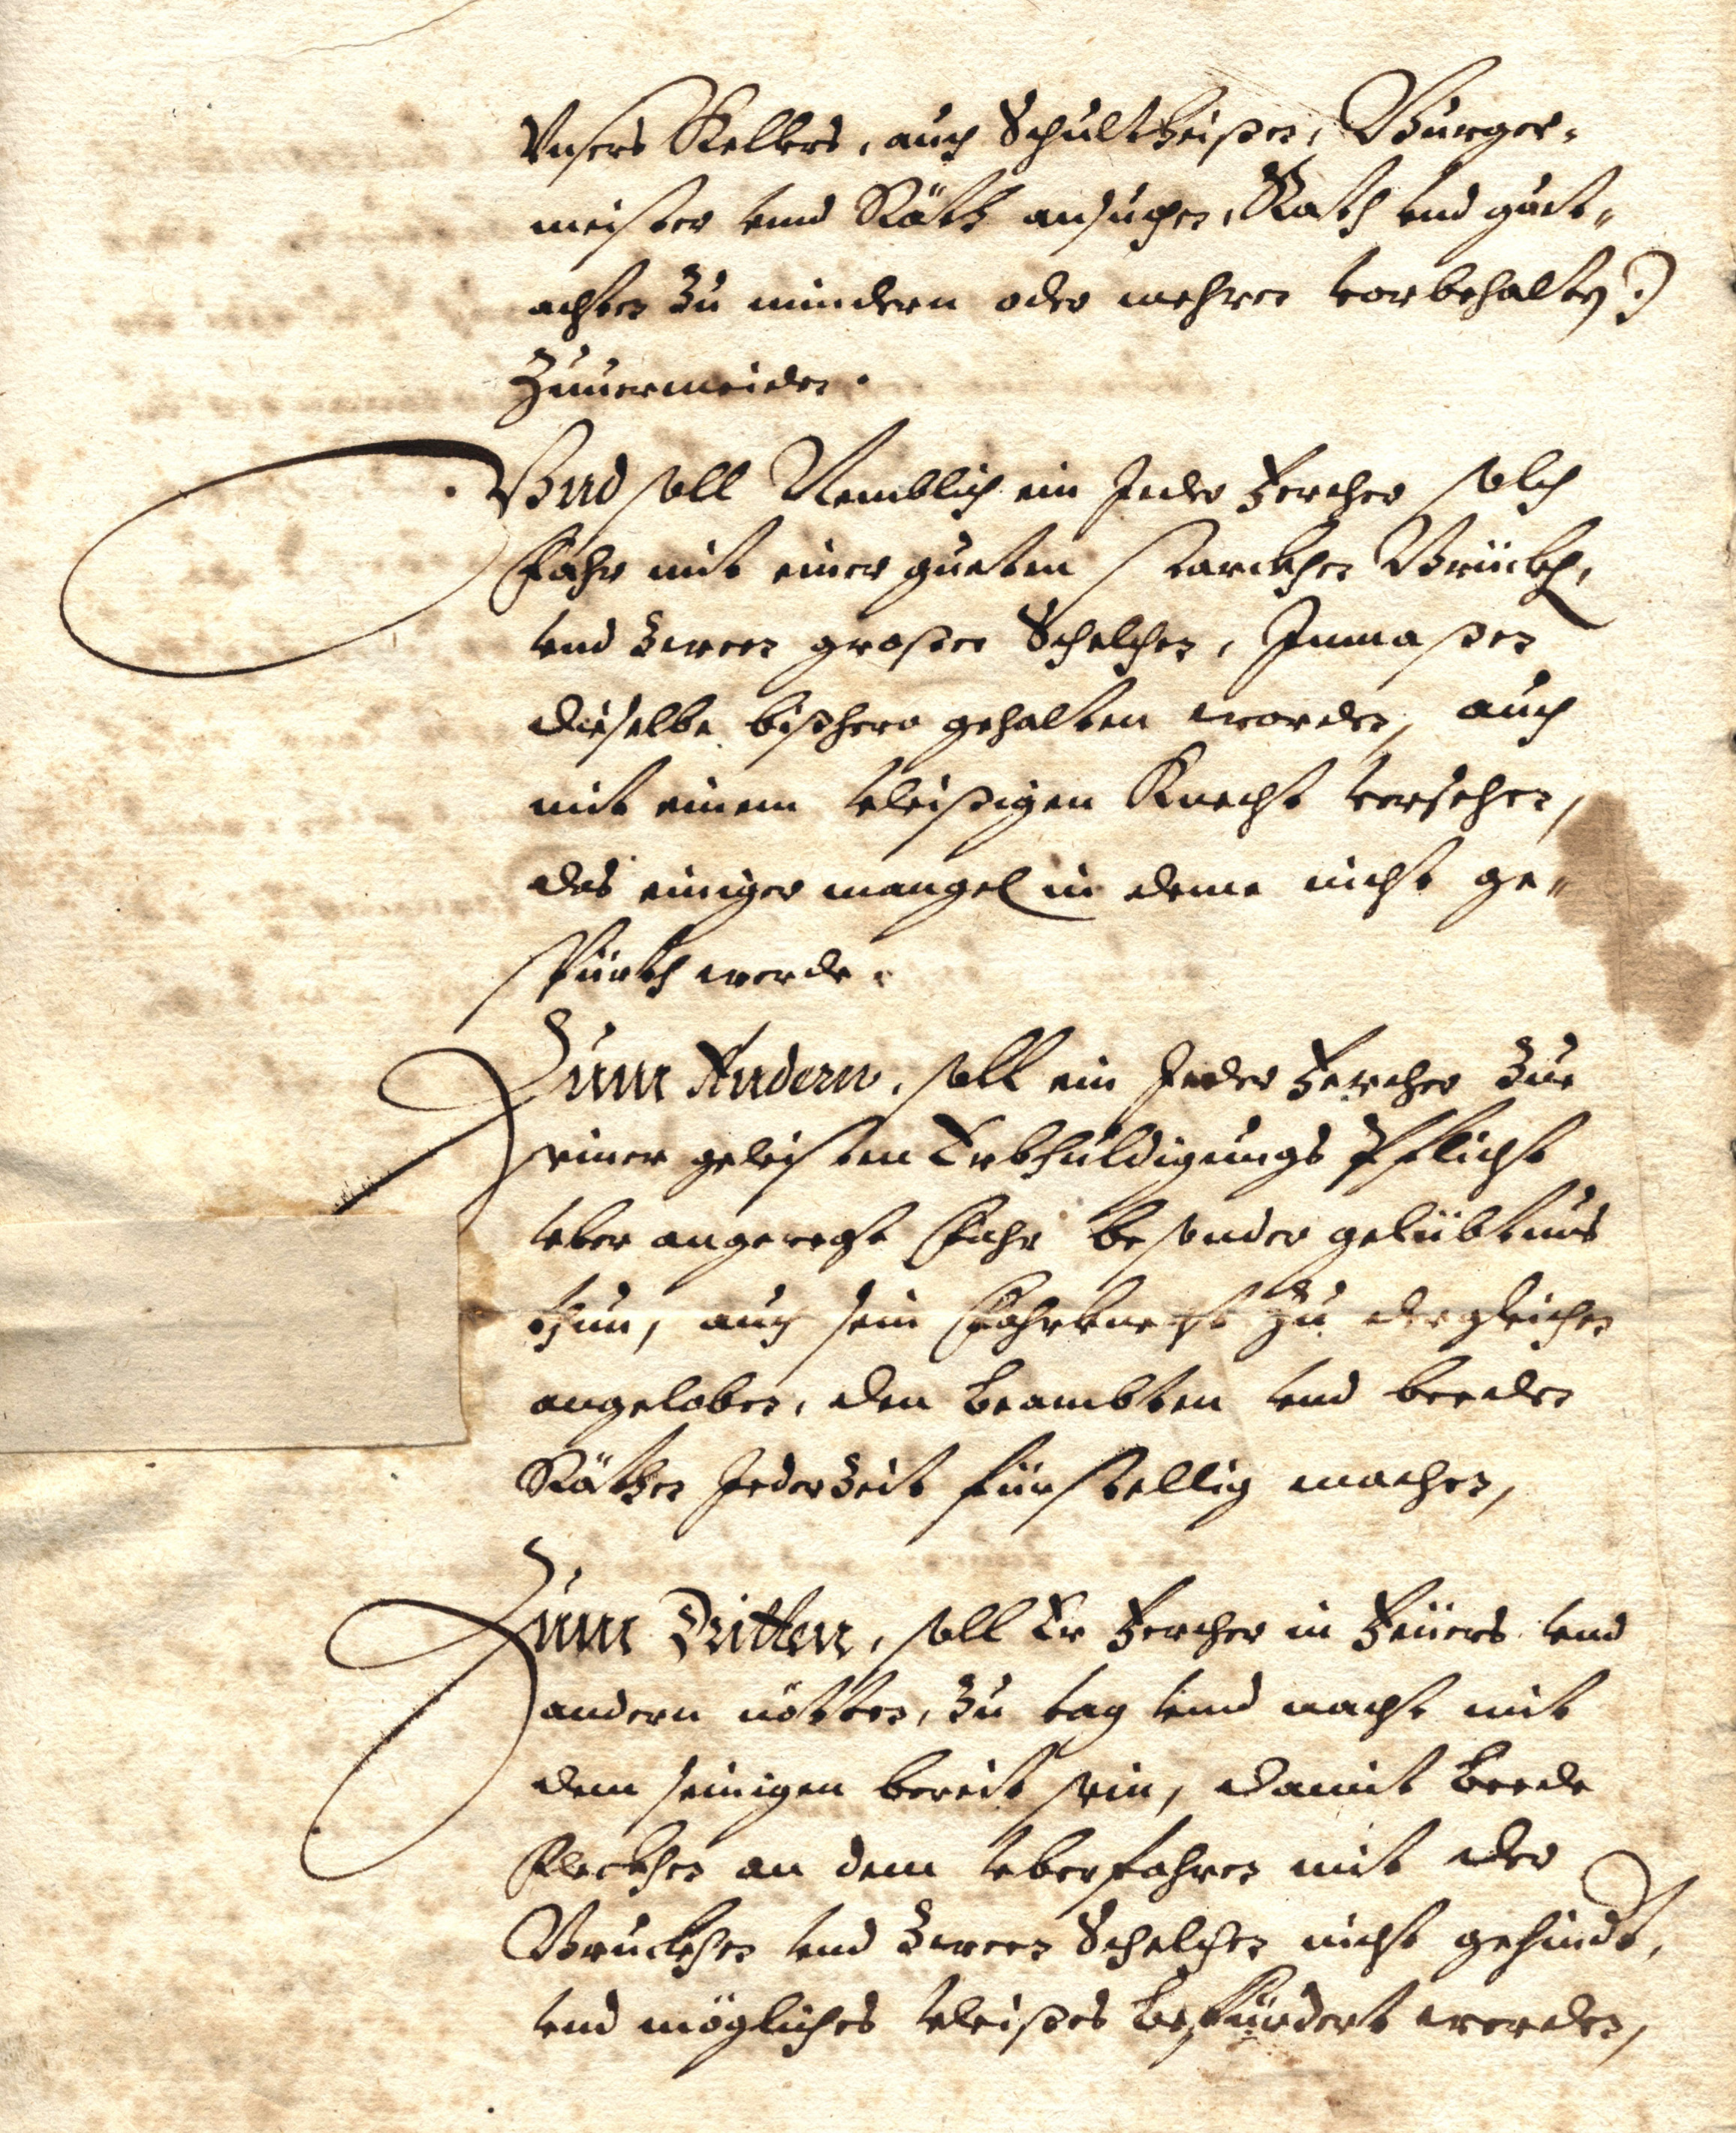 Vnsers Kellers, auch Schultheißen, Burger-
meister vnnd Räth ansuchen, Rath vnd guet-
achten zu mindern oder mehren vorbehalten.)
Zuuermeiden.
Vnd soll Nemblich ein Jeder Fercher solch
Fahr mit einer gueten starckhen Brückh,
vnd zween großen Schelchen, Inmaßen
dieselbe bißhero gehalten worden, auch
mit einem vleißigen Knecht versehen,
das einiger mangel in deme nicht ge-
spürth werde.
Zum Andern, soll ein Jeder Fercher zue
seiner geleisten Erbhuldigungs Pflicht
vber angeregt Fahr besonder gelübtnus
thun, auch sein Fahrknecht zu dergleichen
angeloben, den beambten vnd beeden
Räthen Jederzeit fürstellig machen,
Zum Dritten, soll Er Fercher in Feüers vnd
andern nötten, zu tag vnnd nacht mit
dem seinigen bereit sein, damit beede
Fleckhen an dem vberfahren mit der
Bruckhen vnd zween Schelchen nicht gehindt,
vnd mögliches vleißes befürdert werden,